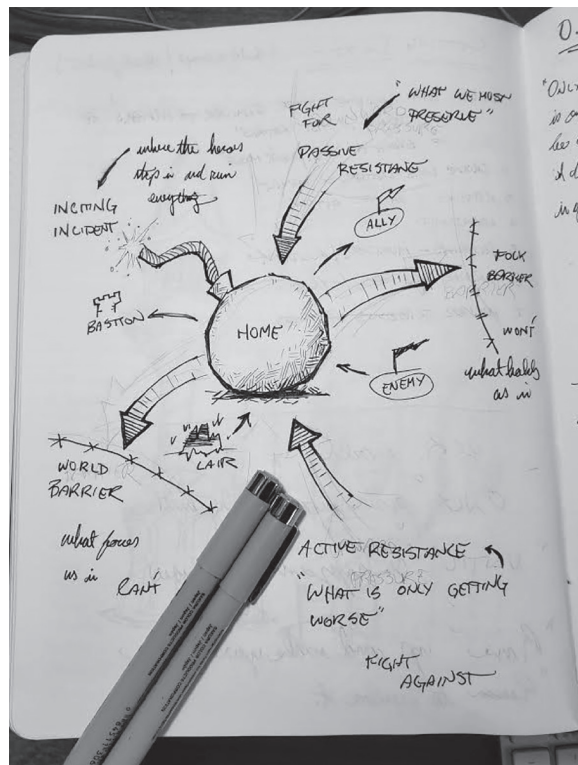 "WHAT WE MUSN
PRESERVE"
FIGHT
FOR
PASSIVE
RESISTANCE
where the heroes
step in and run
everything
INCITING
INCIDENT
ALLY
FOLK
BARRIER
WON'T
what holds
us in
BASTION
HOME
ENEMY
LAIR
WORLD
BARRIER
what forces
us in
CAN'T
ACTIVE RESISTANCE
"WHAT IS ONLY GETTING
WORSE"
FIGHT
AGAINST
"ONLY